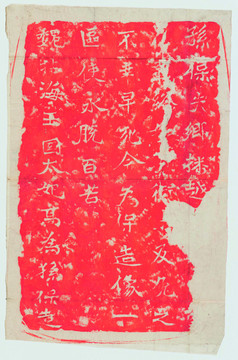 孫保失鄉播越
及九之
不幸早死今為保造像一
區使永脫百苦
魏北海王國太妃高為孫保造